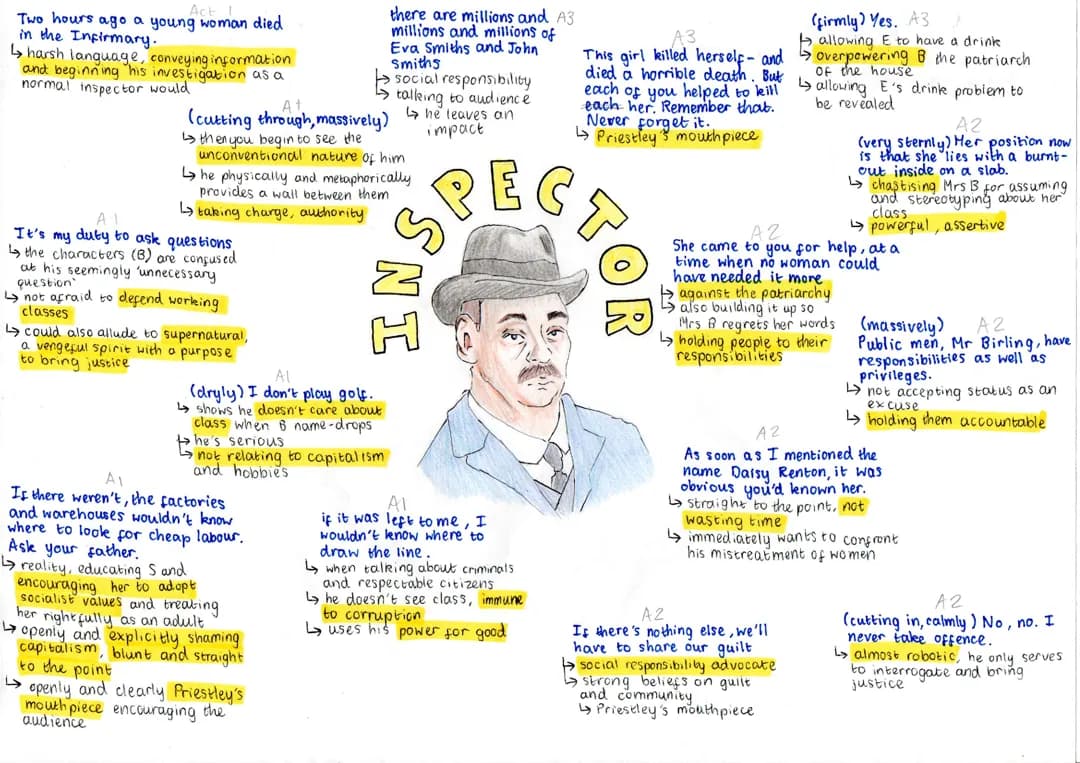 Act 1
Two hours ago a young woman died
in the Infirmary.
↳ harsh language, conveying information
and beginning his investigation as a
normal inspector would
there are millions and A3
millions and millions of
Eva Smiths and John
Smiths
↳ social responsibility
↳ talking to audience
↳ he leaves an
impact
A3
This girl killed herself - and
died a horrible death. But
each of you helped to kill
each her. Remember that.
Never forget it.
↳ Priestley's mouthpiece
(firmly) Yes. A3
↳ allowing E to have a drink
↳ overpowering B the patriarch
of the house
↳ allowing E's drink problem to
be revealed
A1
(cutting through, massively)
↳ then you begin to see the
unconventional nature of him
↳ he physically and metaphorically
provides a wall between them
↳ taking charge, authority
A2
(very sternly) Her position now
is that she lies with a burnt-
out inside on a slab.
↳ chastising Mrs B for assuming
and stereotyping about her
class
↳ powerful, assertive
INSPECTOR
A1
It's my duty to ask questions
↳ the characters (B) are confused
at his seemingly 'unnecessary
question'
↳ not afraid to defend working
classes
↳ could also allude to supernatural,
a vengeful spirit with a purpose
to bring justice
A2
She came to you for help, at a
time when no woman could
have needed it more
↳ against the patriarchy
↳ also building it up so
Mrs B regrets her words
↳ holding people to their
responsibilities
(massively) A2
Public men, Mr Birling, have
responsibilities as well as
privileges.
↳ not accepting status as an
excuse
↳ holding them accountable
A1
(dryly) I don't play golf.
↳ shows he doesn't care about
class when B name-drops
↳ he's serious
↳ not relating to capitalism
and hobbies
A2
As soon as I mentioned the
name Daisy Renton, it was
obvious you'd known her.
↳ straight to the point, not
wasting time
↳ immediately wants to confront
his mistreatment of women
A1
If there weren't, the factories
and warehouses wouldn't know
where to look for cheap labour.
Ask your father.
↳ reality, educating S and
encouraging her to adopt
socialist values and treating
her rightfully as an adult
↳ openly and explicitly shaming
capitalism, blunt and straight
to the point
↳ openly and clearly Priestley's
mouthpiece encouraging the
audience
A1
if it was left to me, I
wouldn't know where to
draw the line.
↳ when talking about criminals
and respectable citizens
↳ he doesn't see class, immune
to corruption
↳ uses his power for good
A2
If there's nothing else, we'll
have to share our guilt
↳ social responsibility advocate
↳ strong beliefs on guilt
and community
↳ Priestley's mouthpiece
A2
(cutting in, calmly) No, no. I
never take offence.
↳ almost robotic, he only serves
to interrogate and bring
justice